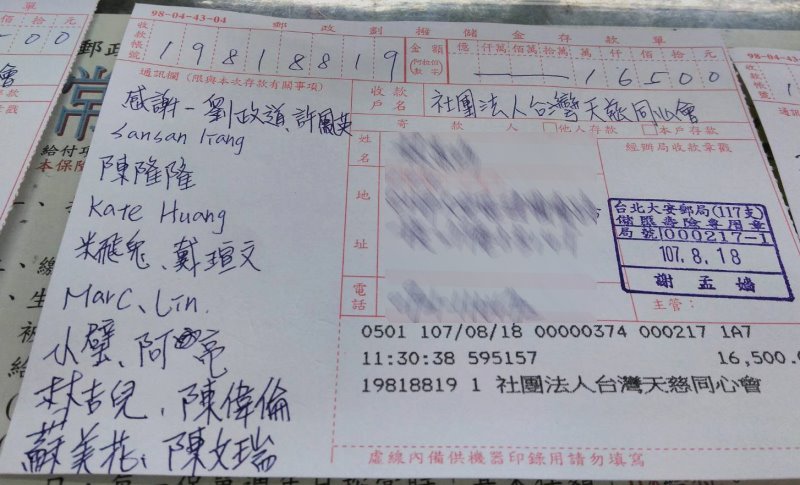 98-04-43-04
郵政劃撥儲金存款單
收款帳號
19818819
金額
阿拉伯數字
億 仟萬 佰萬 拾萬 萬 仟 佰 拾 元
16500
通訊欄(限與本次存款有關事項)
收款戶名
社團法人台灣天慈同心會
感謝-劉政道、許鳳英
sansan liang
陳隆隆
Kate Huang
米飛兔、戴瑄文
Marc、Lin.
小璧、阿亮
林吉兒、陳偉倫
蘇美花、陳文瑞
寄款人
□他人存款 □本戶存款
姓名
地址
電話
經辦局收款章戳
台北大安郵局(117支)
儲匯壽險專用章
局號000217-1
107.8.18
謝孟嬙
主管:
0501 107/08/18 00000374 000217 1A7
11:30:38 595157 16,500.
19818819 1 社團法人台灣天慈同心會
虛線內備供機器印錄用請勿填寫